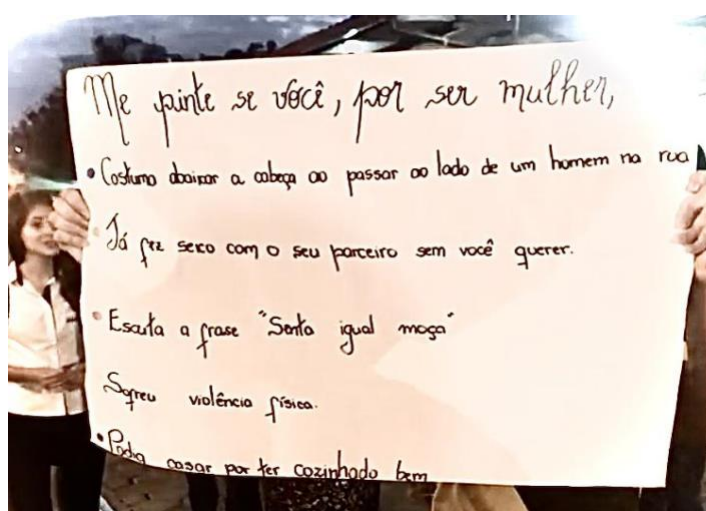 Me pinte se você, por ser mulher,
• Costuma abaixar a cabeça ao passar ao lado de um homem na rua
• Já fez sexo com o seu parceiro sem você querer.
• Escuta a frase "Senta igual moça"
Sofreu violência física.
• Podia casar por ter cozinhado bem